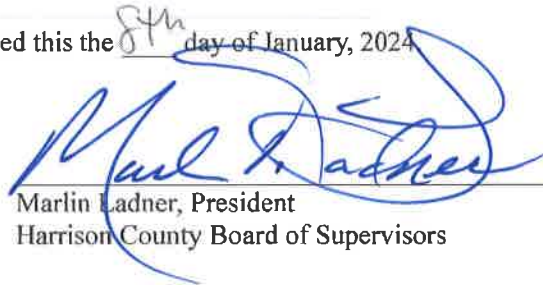 ed this the 8th day of January, 2024
Marlin Ladner, President
Harrison County Board of Supervisors